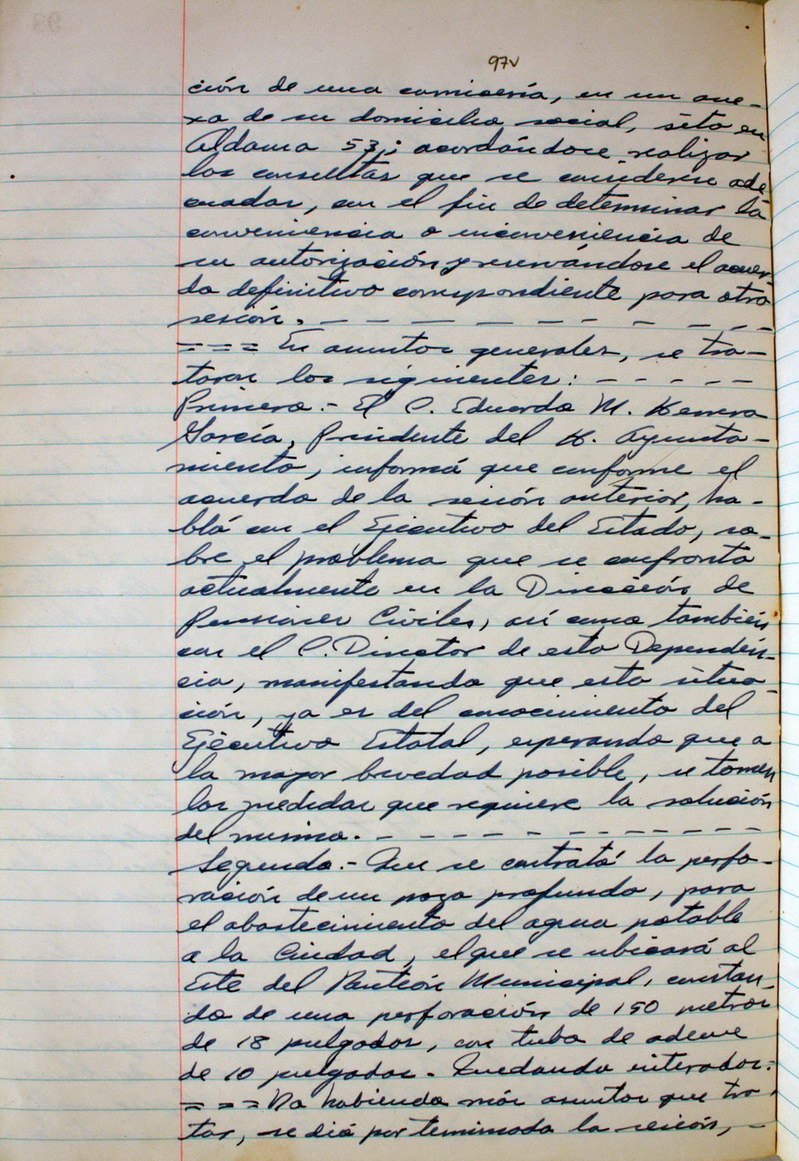 97v
ción de una carnicería, en un ane-
xo de su domicilio social, sito en
Aldama 53; acordándose realizar
las consultas que se consideren ade-
cuadas, con el fin de determinar la
conveniencia o inconveniencia de
su autorización y reservándose el acuer-
do definitivo correspondiente para otra
sesión. - - - - - - - - - -
= = = En asuntos generales, se tra-
taron los siguientes: - - - - -
Primero.- El C. Eduardo M. Herrera
García, Presidente del H. Ayunta-
miento, informó que conforme el
acuerdo de la sesión anterior, ha-
bló con el Ejecutivo del Estado, so-
bre el problema que se confronta
actualmente en la Dirección de
Pensiones Civiles, así como también
con el C. Director de esta Dependen-
cia, manifestando que esta situa-
ción, ya es del conocimiento del
Ejecutivo Estatal, esperando que a
la mayor brevedad posible, se tomen
las medidas que requiere la solución
del mismo. - - - - - - - - - - - -
Segundo.- Que se contrató la perfo-
ración de un pozo profundo, para
el abastecimiento del agua potable
a la Ciudad, el que se ubicará al
Este del Panteón Municipal, constan-
do de una perforación de 150 metros
de 18 pulgadas, con tubo de ademe
de 10 pulgadas. - Quedando enterados.=
= = = No habiendo más asuntos que tra-
tar, se dió por terminada la sesión, -